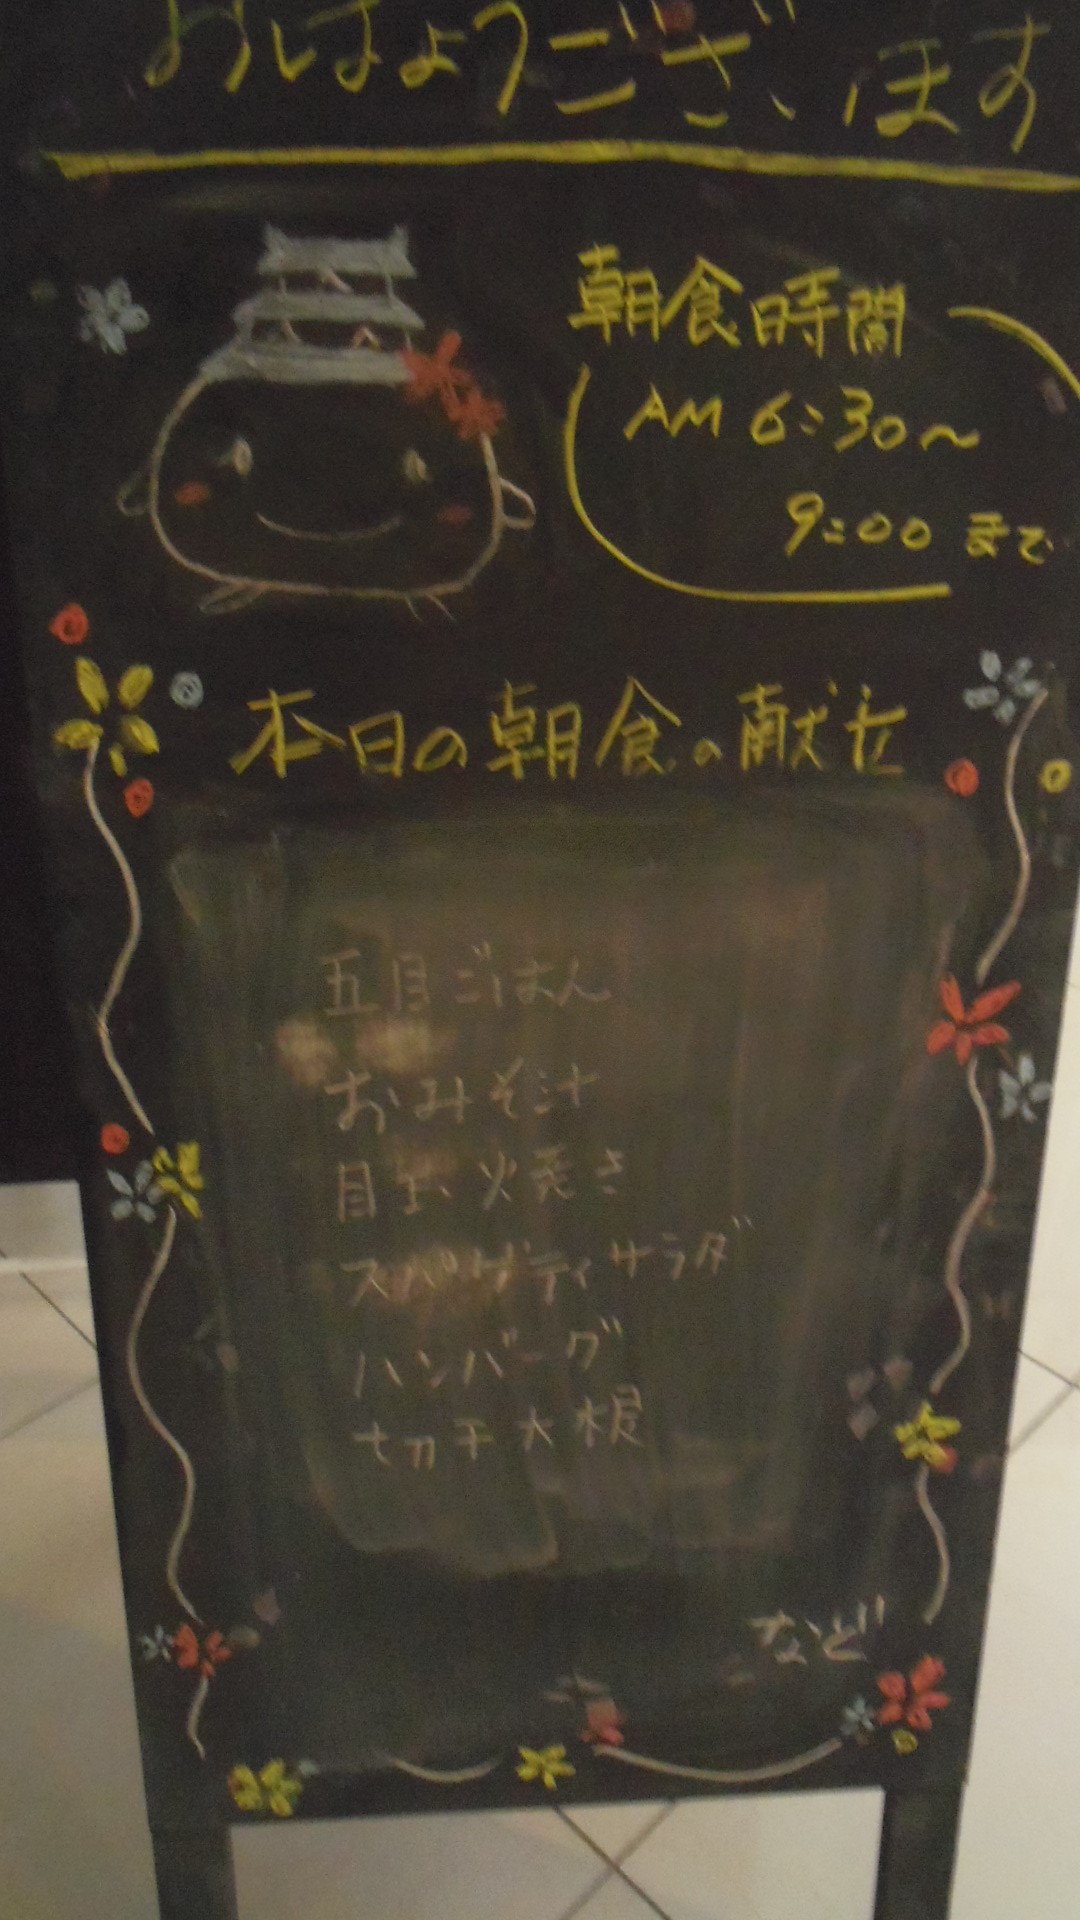 おはようございます
朝食時間
AM 6:30～
9:00 まで
本日の朝食の献立
五目ごはん
おみそ汁
目玉焼き
スパゲティサラダ
ハンバーグ
切干大根
など